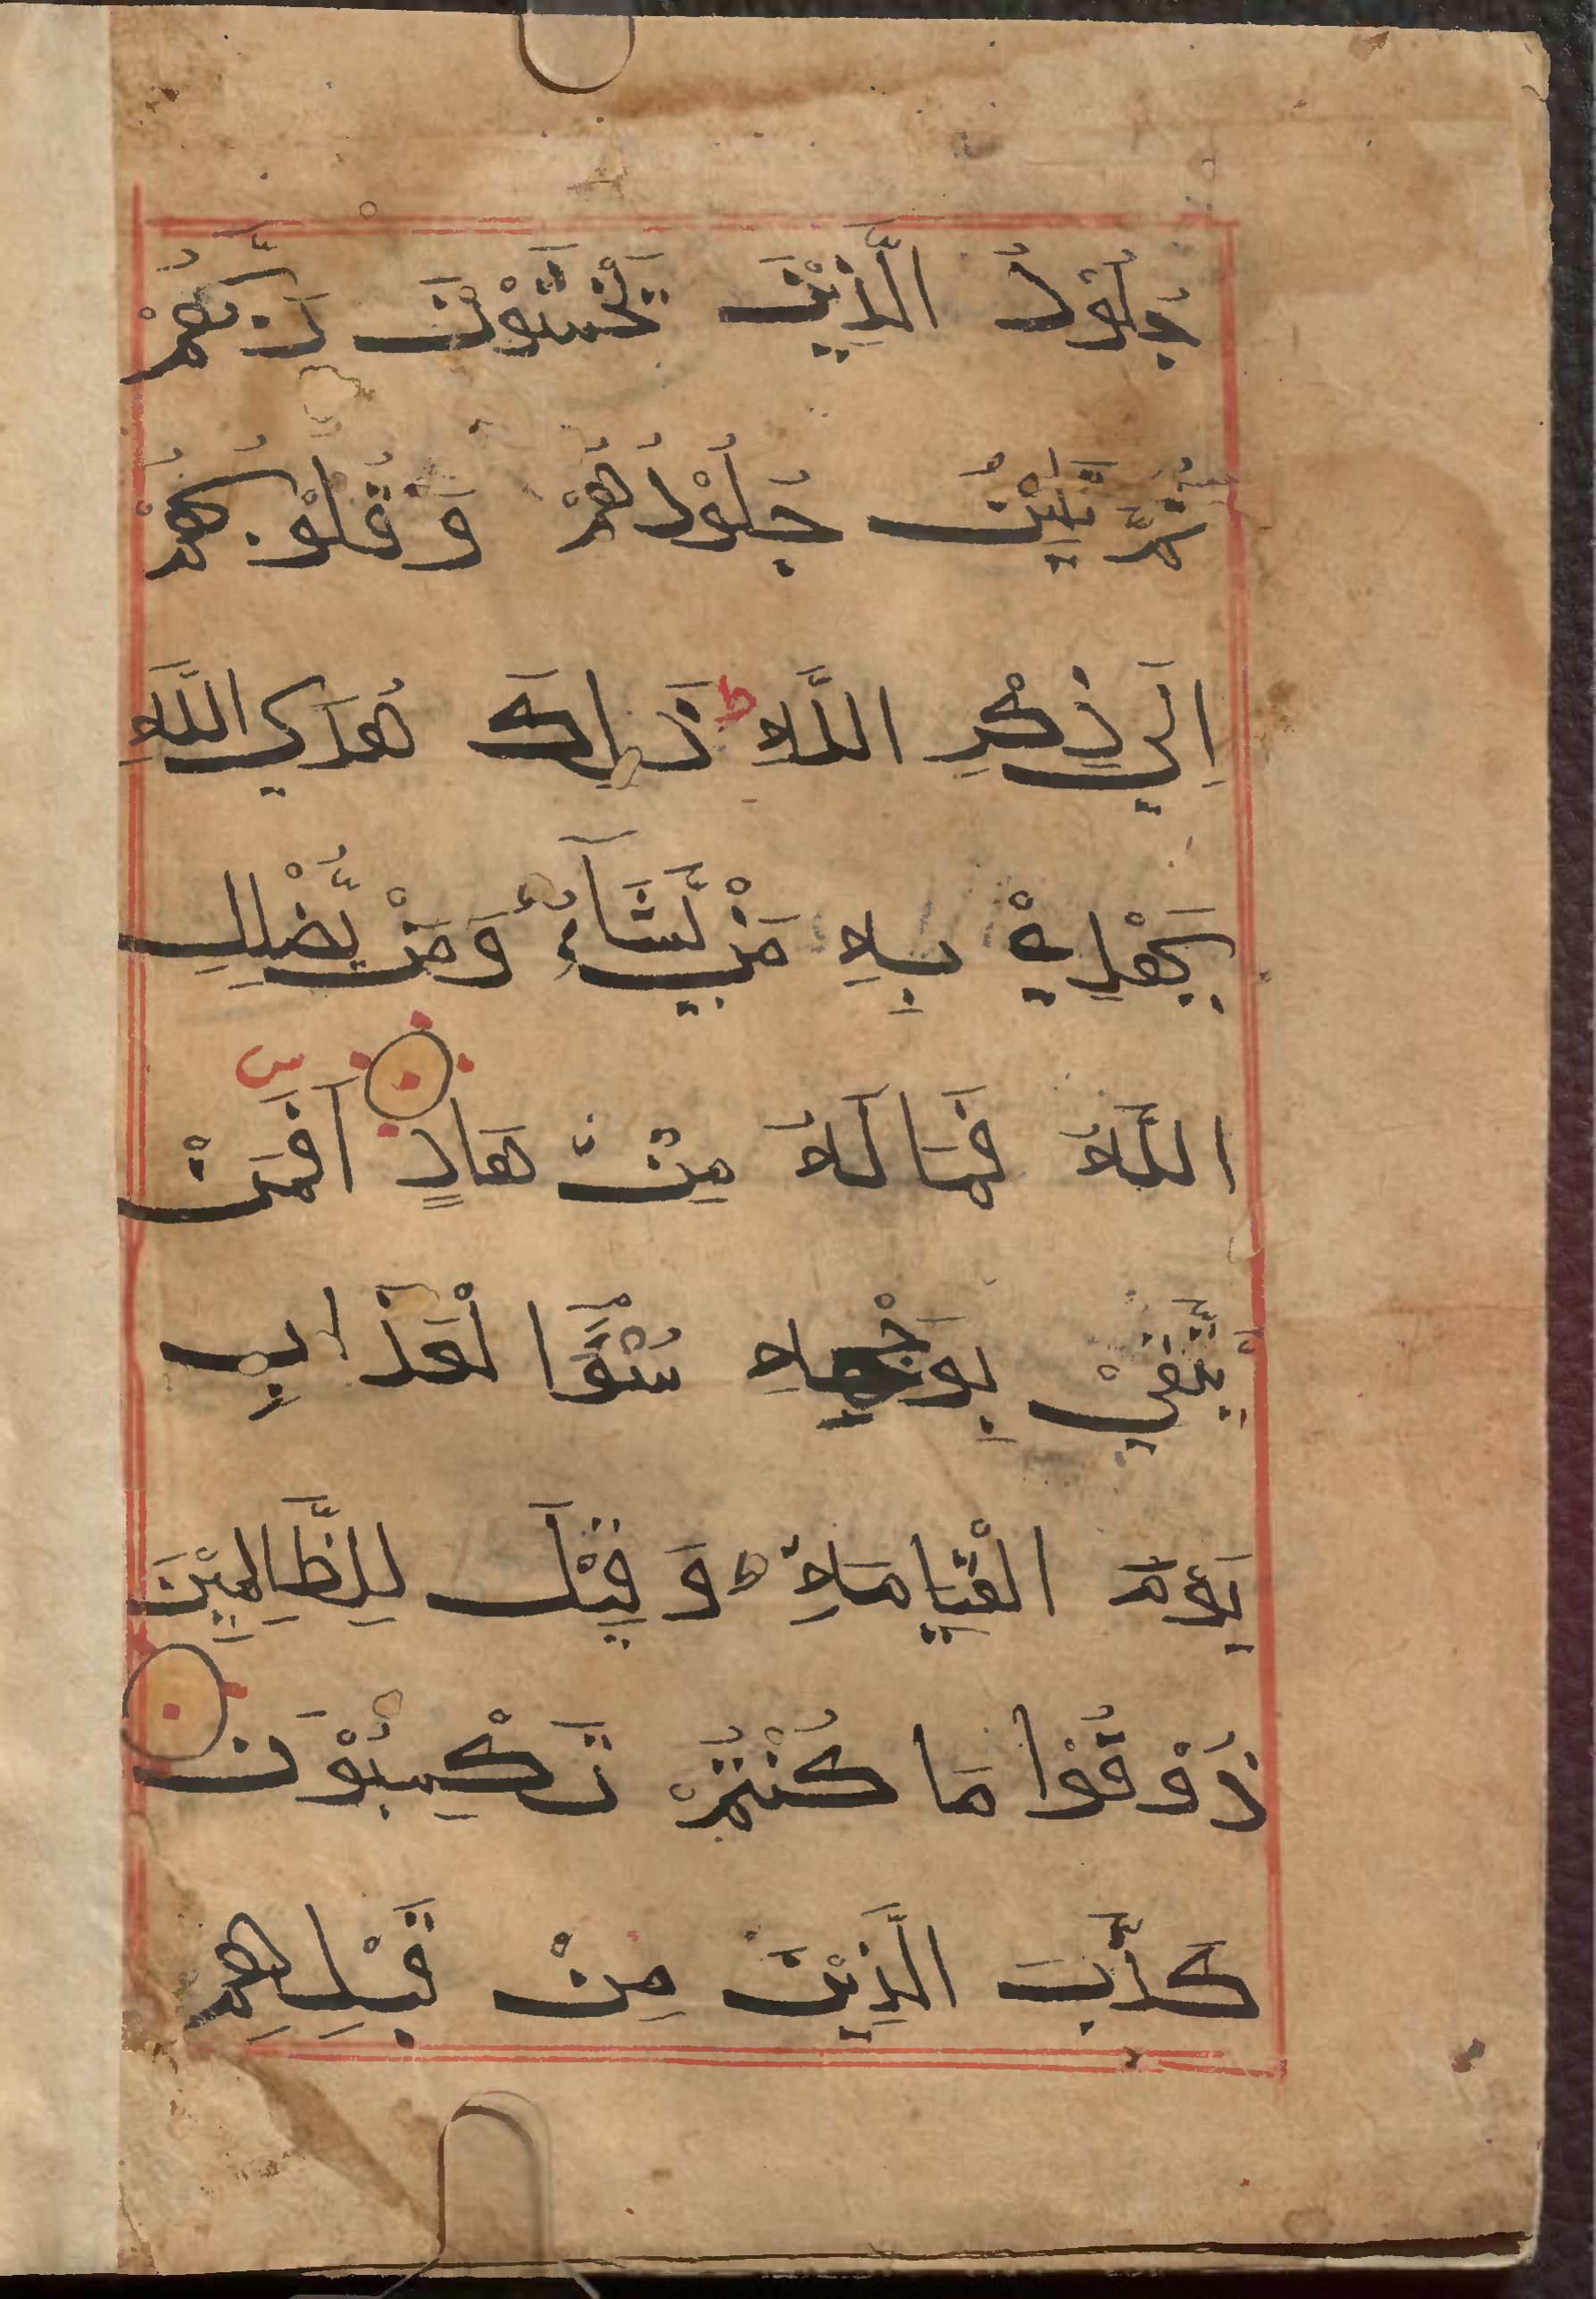 جُلُوْدُ الَّذِيْنَ يَخْشَوْنَ رَبَّهُمْ
ثُمَّ تَلِيْنُ جُلُوْدُهُمْ وَ قُلُوْبُهُمْ
اِلَي ذِكْرِ اللَّهِ ط ذَلِكَ هُدَي اللَّهِ
يَهْدِيْ بِهِ مَنْ يَّشَآءُ وَمَنْ يُّضْلِلِ
اللَّهُ فَمَا لَهُ مِنْ هَادٍ اَفَمَنْ
يَّتَّقِيْ بِوَجْهِهِ سُوْٓءَ الْعَذَابِ
يَوْمَ الْقِيَامَةِ ط وَ قِيْلَ لِلظَّالِمِيْنَ
ذُوْقُوْا مَا كُنْتُمْ تَكْسِبُوْنَ
كَذَّبَ الَّذِيْنَ مِنْ قَبْلِهِمْ